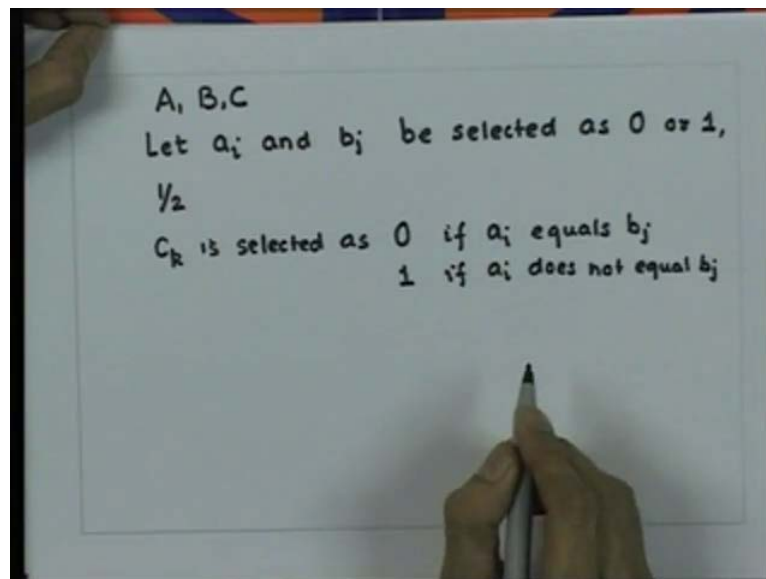 A, B, C
Let aᵢ and bⱼ be selected as 0 or 1,
1/2
Cₖ is selected as 0 if aᵢ equals bⱼ
1 if aᵢ does not equal bⱼ